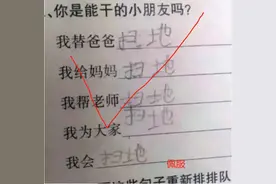 、你是能干的小朋友吗？
我替爸爸 扫地
我给妈妈 扫地
我帮老师 扫地
我为大家 扫地
我会 扫地
佩服
些句子重新排排队